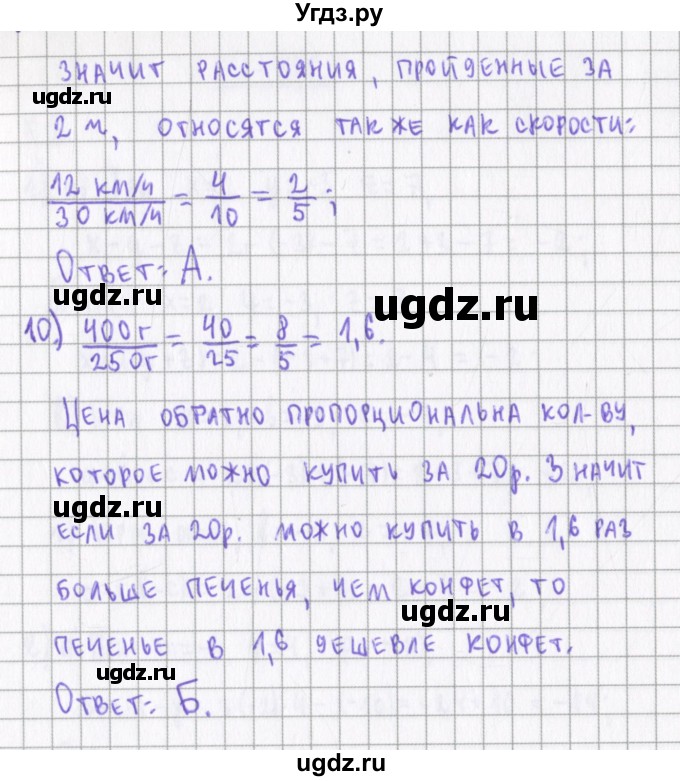 Угдз.ру
ЗНАЧИТ РАССТОЯНИЯ, ПРОЙДЕННЫЕ ЗА
ugdz.ru
2 м, ОТНОСЯТСЯ ТАК ЖЕ КАК СКОРОСТИ:
12 км/ч / 30 км/ч = 4/10 = 2/5;
ОТВЕТ: А.
ugdz.ru
ugdz.ru
10) 400г/250г = 40/25 = 8/5 = 1,6.
ЦЕНА ОБРАТНО ПРОПОРЦИОНАЛЬНА КОЛ-ВУ,
КОТОРОЕ МОЖНО КУПИТЬ ЗА 20р. ЗНАЧИТ
ugdz.ru
ЕСЛИ ЗА 20р. МОЖНО КУПИТЬ В 1,6 РАЗ
БОЛЬШЕ ПЕЧЕНЬЯ, ЧЕМ КОНФЕТ, ТО
ugdz.ru
ПЕЧЕНЬЕ В 1,6 ДЕШЕВЛЕ КОНФЕТ.
ugdz.ru
ОТВЕТ: Б.
ugdz.ru
ugdz.ru